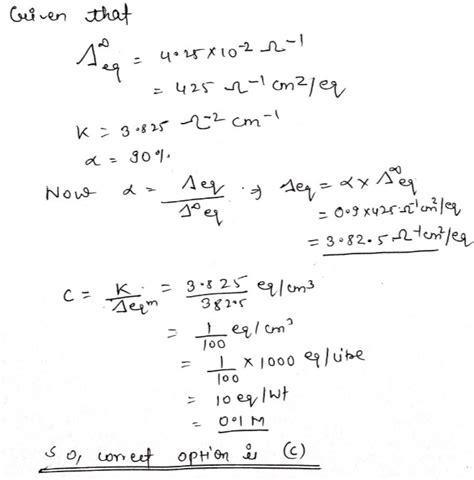 Given that
Λ∞eq = 4.25×10-2 Ω-1
= 425 Ω-1 cm2/eq
K = 3.825 Ω-2 cm-1
α = 90%.
Now α = Λeq / Λ∞eq ⇒ Λeq = α × Λ∞eq
= 0.9×425 Ω-1cm2/eq
= 3.82.5 Ω-1cm2/eq
C = K / Λeqm = 3.825 / 382.5 eq/cm3
= 1/100 eq/cm3
= 1/100 × 1000 eq/litre
= 10 eq/wt
= 0.1 M
So, correct option is (C)